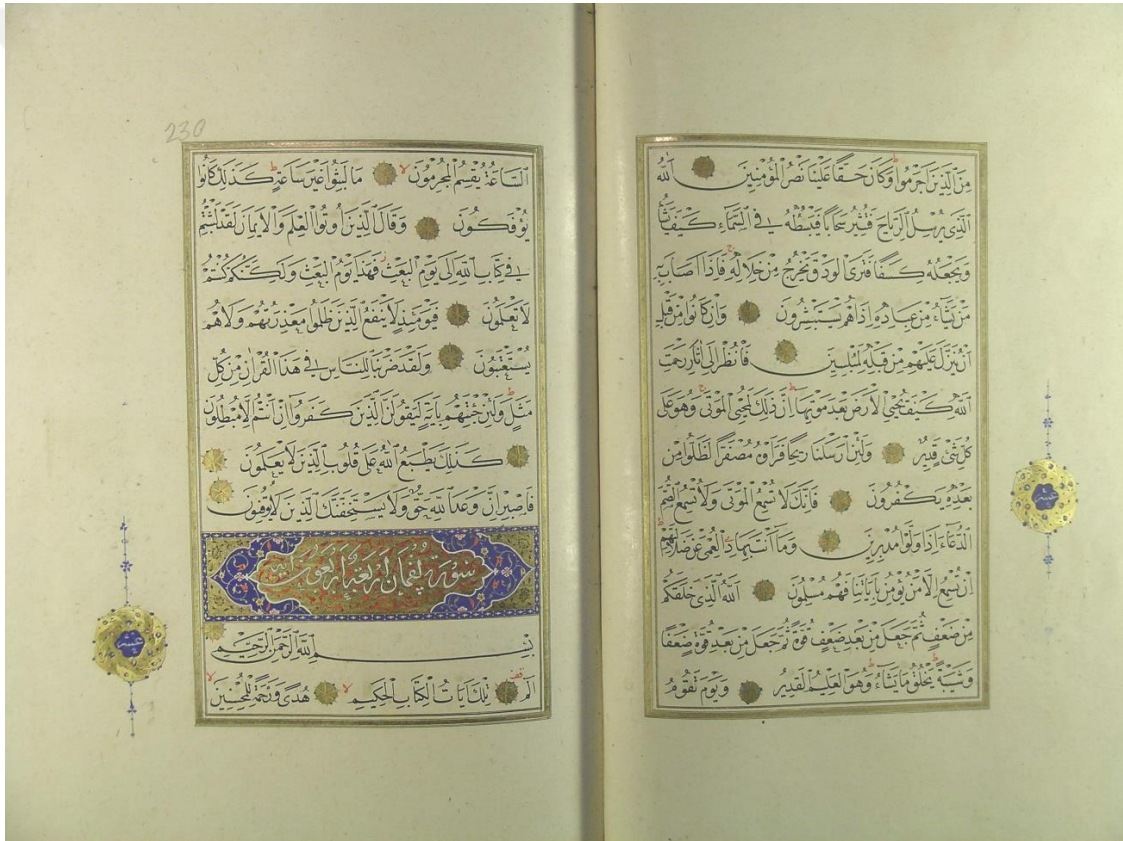 مِنَ الَّذِينَ اَجْرَمُوا وَكَانَ حَقًّا عَلَيْنَا نَصْرُ الْمُؤْمِنِينَ اَللّٰهُ
الَّذِى يُرْسِلُ الرِّيَاحَ فَتُثِيرُ سَحَابًا فَيَبْسُطُهُ فِى السَّمَاءِ كَيْفَ يَشَاءُ
وَيَجْعَلُهُ كِسَفًا فَتَرَى الْوَدْقَ يَخْرُجُ مِنْ خِلَالِهِ فَاِذَا اَصَابَ بِهِ
مَنْ يَشَاءُ مِنْ عِبَادِهِ اِذَا هُمْ يَسْتَبْشِرُونَ وَاِنْ كَانُوا مِنْ قَبْلِ
اَنْ يُنَزَّلَ عَلَيْهِمْ مِنْ قَبْلِهِ لَمُبْلِسِينَ فَانْظُرْ اِلٰى اٰثَارِ رَحْمَتِ
اللّٰهِ كَيْفَ يُحْيِى الْاَرْضَ بَعْدَ مَوْتِهَا اِنَّ ذٰلِكَ لَمُحْيِى الْمَوْتٰى وَهُوَ عَلٰى
كُلِّ شَىْءٍ قَدِيرٌ وَلَئِنْ اَرْسَلْنَا رِيحًا فَرَاَوْهُ مُصْفَرًّا لَظَلُّوا مِنْ
بَعْدِهِ يَكْفُرُونَ فَاِنَّكَ لَا تُسْمِعُ الْمَوْتٰى وَلَا تُسْمِعُ الصُّمَّ
الدُّعَاءَ اِذَا وَلَّوْا مُدْبِرِينَ وَمَا اَنْتَ بِهَادِ الْعُمْىِ عَنْ ضَلَالَتِهِمْ
اِنْ تُسْمِعُ اِلَّا مَنْ يُؤْمِنُ بِاٰيَاتِنَا فَهُمْ مُسْلِمُونَ اَللّٰهُ الَّذِى خَلَقَكُمْ
مِنْ ضَعْفٍ ثُمَّ جَعَلَ مِنْ بَعْدِ ضَعْفٍ قُوَّةً ثُمَّ جَعَلَ مِنْ بَعْدِ قُوَّةٍ ضَعْفًا
وَشَيْبَةً يَخْلُقُ مَا يَشَاءُ وَهُوَ الْعَلِيمُ الْقَدِيرُ وَيَوْمَ تَقُومُ
230
السَّاعَةُ يُقْسِمُ الْمُجْرِمُونَ مَا لَبِثُوا غَيْرَ سَاعَةٍ كَذٰلِكَ كَانُوا
يُؤْفَكُونَ وَقَالَ الَّذِينَ اُوتُوا الْعِلْمَ وَالْاِيمَانَ لَقَدْ لَبِثْتُمْ
فِى كِتَابِ اللّٰهِ اِلٰى يَوْمِ الْبَعْثِ فَهٰذَا يَوْمُ الْبَعْثِ وَلٰكِنَّكُمْ كُنْتُمْ
لَا تَعْلَمُونَ فَيَوْمَئِذٍ لَا يَنْفَعُ الَّذِينَ ظَلَمُوا مَعْذِرَتُهُمْ وَلَا هُمْ
يُسْتَعْتَبُونَ وَلَقَدْ ضَرَبْنَا لِلنَّاسِ فِى هٰذَا الْقُرْاٰنِ مِنْ كُلِّ
مَثَلٍ وَلَئِنْ جِئْتَهُمْ بِاٰيَةٍ لَيَقُولَنَّ الَّذِينَ كَفَرُوا اِنْ اَنْتُمْ اِلَّا مُبْطِلُونَ
كَذٰلِكَ يَطْبَعُ اللّٰهُ عَلٰى قُلُوبِ الَّذِينَ لَا يَعْلَمُونَ
فَاصْبِرْ اِنَّ وَعْدَ اللّٰهِ حَقٌّ وَلَا يَسْتَخِفَّنَّكَ الَّذِينَ لَا يُوقِنُونَ
سورة لقمان اربع وثلثون آية
بِسْمِ اللّٰهِ الرَّحْمٰنِ الرَّحِيمِ
الٓمٓ تِلْكَ اٰيَاتُ الْكِتَابِ الْحَكِيمِ هُدًى وَرَحْمَةً لِلْمُحْسِنِينَ